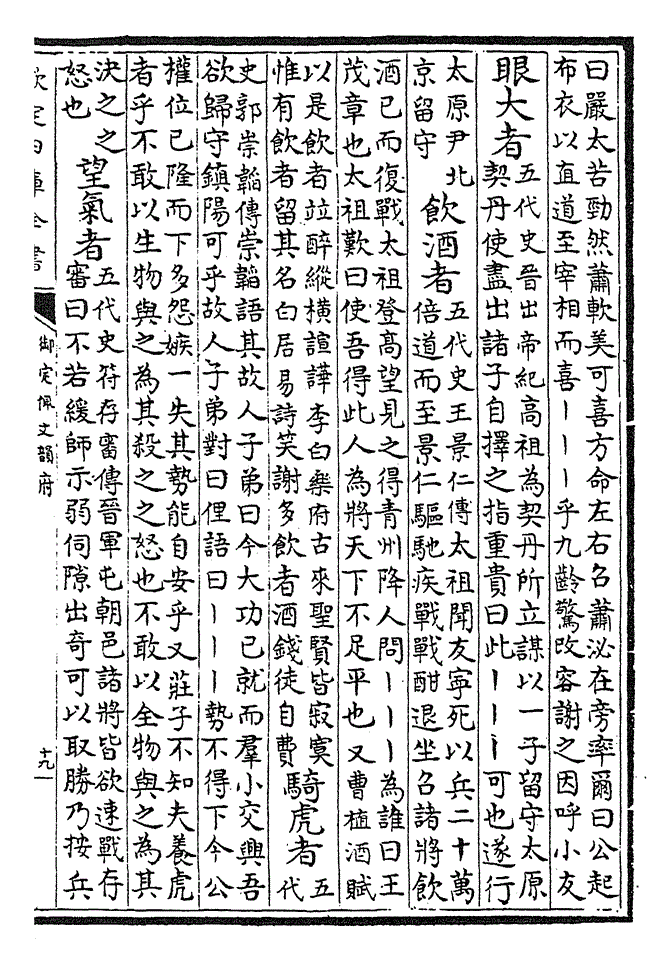 曰嚴太苦勁然蕭軟美可喜方命左右召蕭泌在旁率爾曰公起
布衣以直道至宰相而喜———乎九齡驚改容謝之因呼小友
眼大者
五代史晉出帝紀高祖為契丹所立謀以一子留守太原
契丹使盡出諸子自擇之指重貴曰此———可也遂行
太原尹北
京留守
飲酒者
五代史王景仁傳太祖聞友寧死以兵二十萬
倍道而至景仁驅馳疾戰戰酣退坐召諸將飲
酒已而復戰太祖登高望見之得青州降人問———為誰曰王
茂章也太祖歎曰使吾得此人為將天下不足平也又曹植酒賦
以是飲者竝醉縱橫諠譁李白樂府古來聖賢皆寂寞
惟有飲者留其名白居易詩笑謝多飲者酒錢徒自費
騎虎者
五
代
史郭崇韜傳崇韜語其故人子弟曰今大功已就而羣小交興吾
欲歸守鎮陽可乎故人子弟對曰俚語曰———勢不得下今公
權位已隆而下多怨嫉一失其勢能自安乎又莊子不知夫養虎
者乎不敢以生物與之為其殺之之怒也不敢以全物與之為其
決之之
怒也
望氣者
五代史符存審傳晉軍屯朝邑諸將皆欲速戰存
審曰不若緩師示弱伺隙出奇可以取勝乃按兵
欽定四庫全書
御定佩文韻府
十九